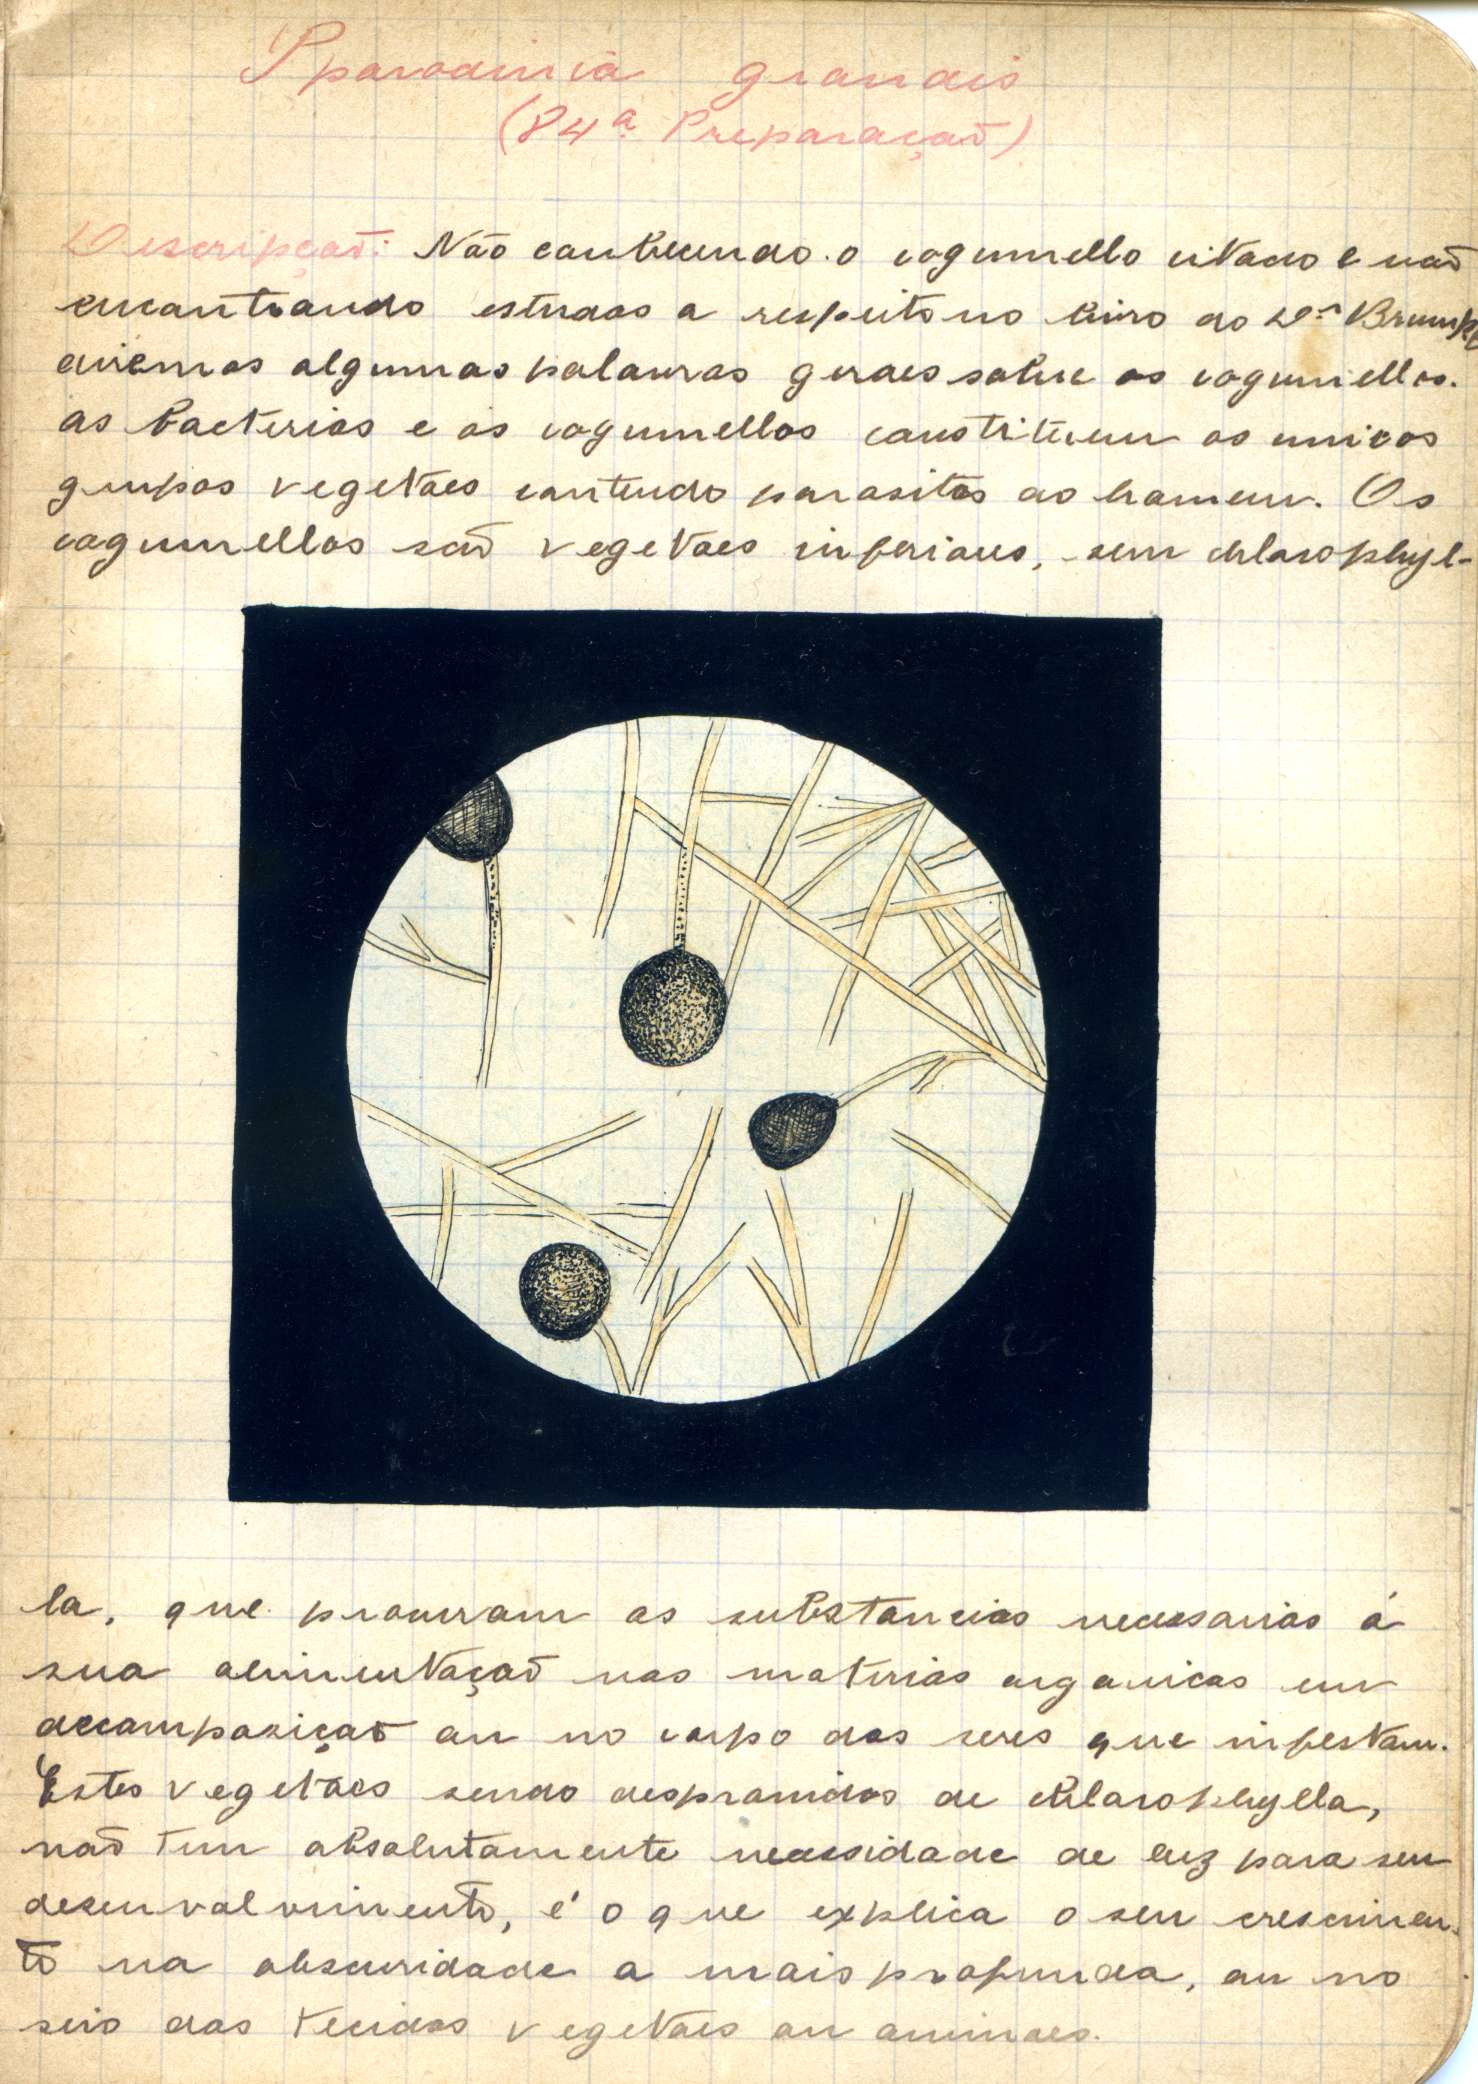 Sporodinia grandis
(84ª Preparação)
Descripção: Não conhecendo o cogumello citado e não
encontrando estudos a respeito no livro do Dr. Brumpt
diremos algumas palavras geraes sobre os cogumellos.
As bacterias e os cogumellos constituem os unicos
grupos vegetaes contendo parasitas do homem. Os
cogumellos são vegetaes inferiores, sem chlorophyl-
la, que procuram as substancias necessarias á
sua alimentação nas materias organicas em
decomposição ou no corpo dos seres que infestam.
Estes vegetaes sendo desprovidos de chlorophylla,
não tem absolutamente necessidade de luz para seu
desenvolvimento, é o que explica o seu crescimen-
to na obscuridade a mais profunda, ou no
seio dos tecidos vegetaes ou animaes.